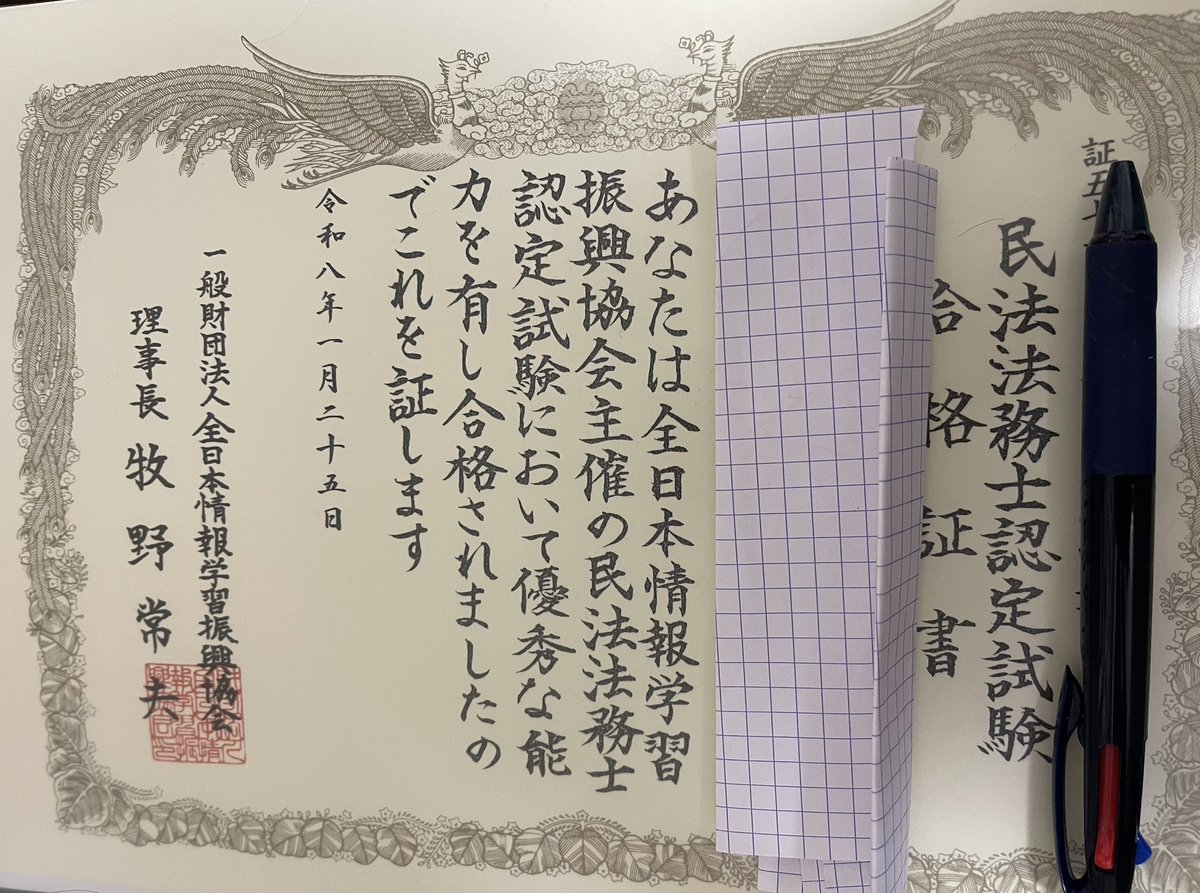 証五十
民法法務士認定試験
合格証書
あなたは全日本情報学習
振興協会主催の民法法務士
認定試験において優秀な能
力を有し合格されましたの
でこれを証します
令和八年一月二十五日
一般財団法人全日本情報学習振興協会
理事長 牧野常夫